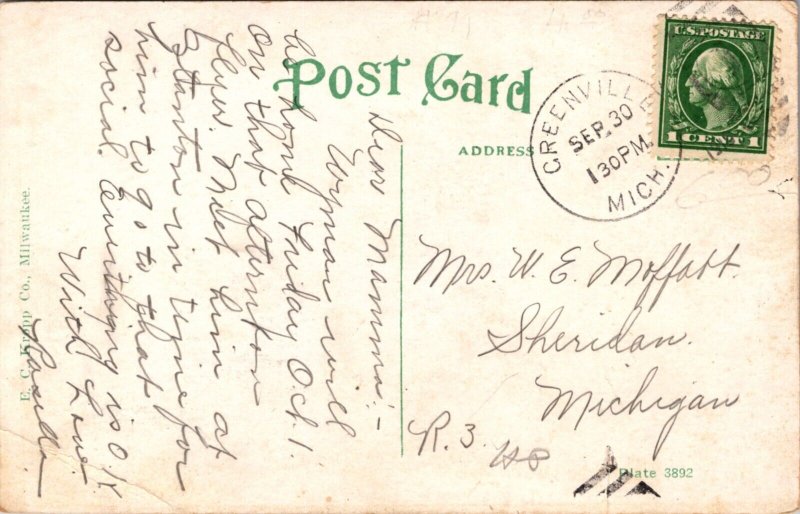 Post Card
ADDRESS
U.S. POSTAGE
1 CENT 1
GREENVILLE
SEP. 30
130 PM.
MICH.
Dear Mamma:-
Wyman will
be home Friday Oct. 1.
on that afternoon
flyer. Meet him at
Stanton in time for
him to go to that
social. Everything is O.K.
With Love
Mrs. W. E. Moffatt.
Sheridan.
Michigan
R. 3.
E. C. Kropp Co., Milwaukee.
Plate 3892